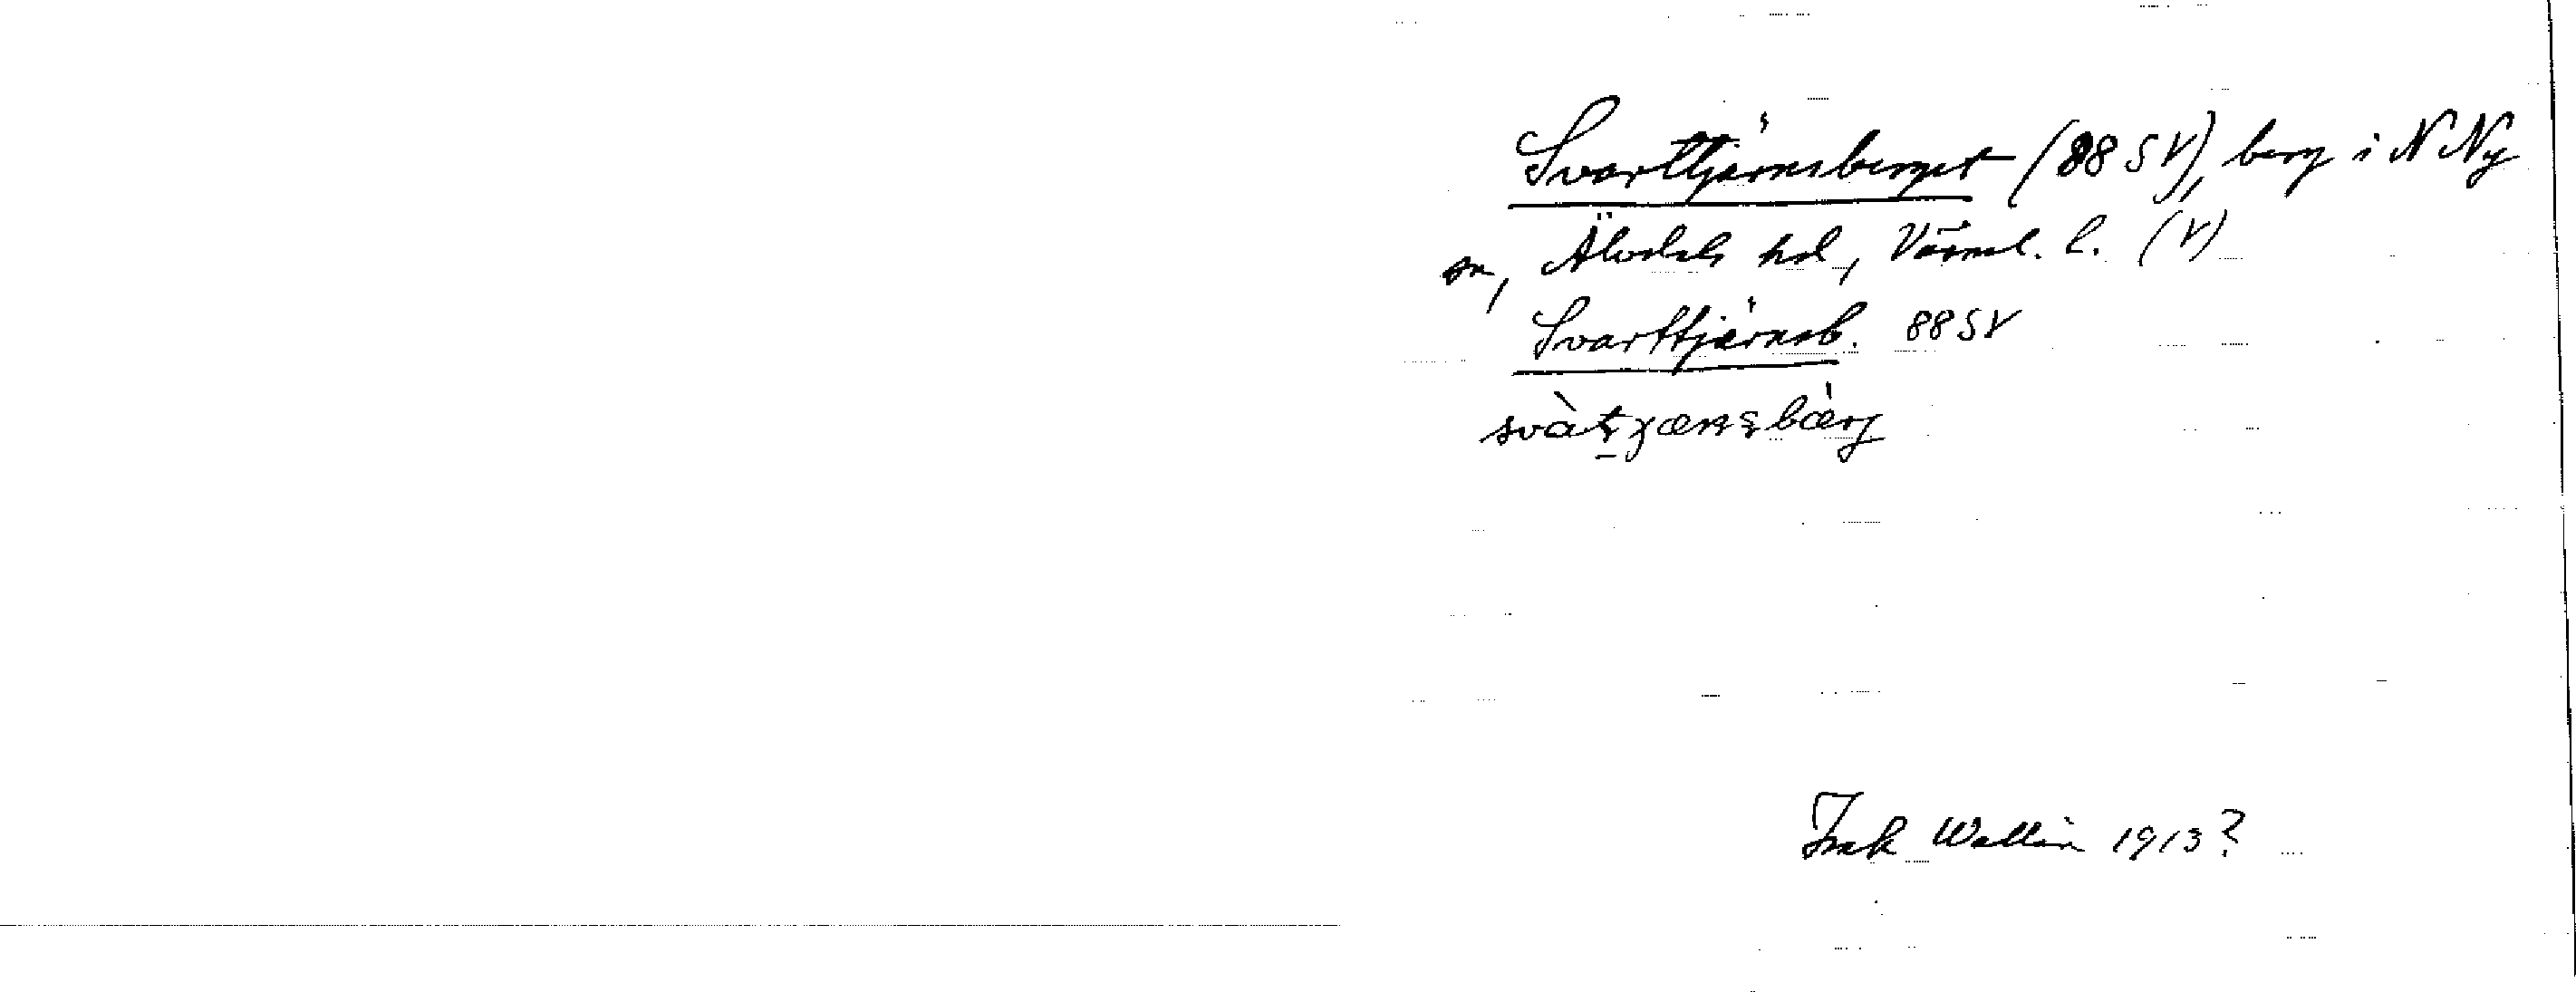 Svarttjärnsberget (88 SV), berg i N Ny
sn, Älvdals hd, Värml. l. (V)
Svarttjärnsb. 88 SV
svàt̠ꞔæɳʂbærj
Wallin 1913?